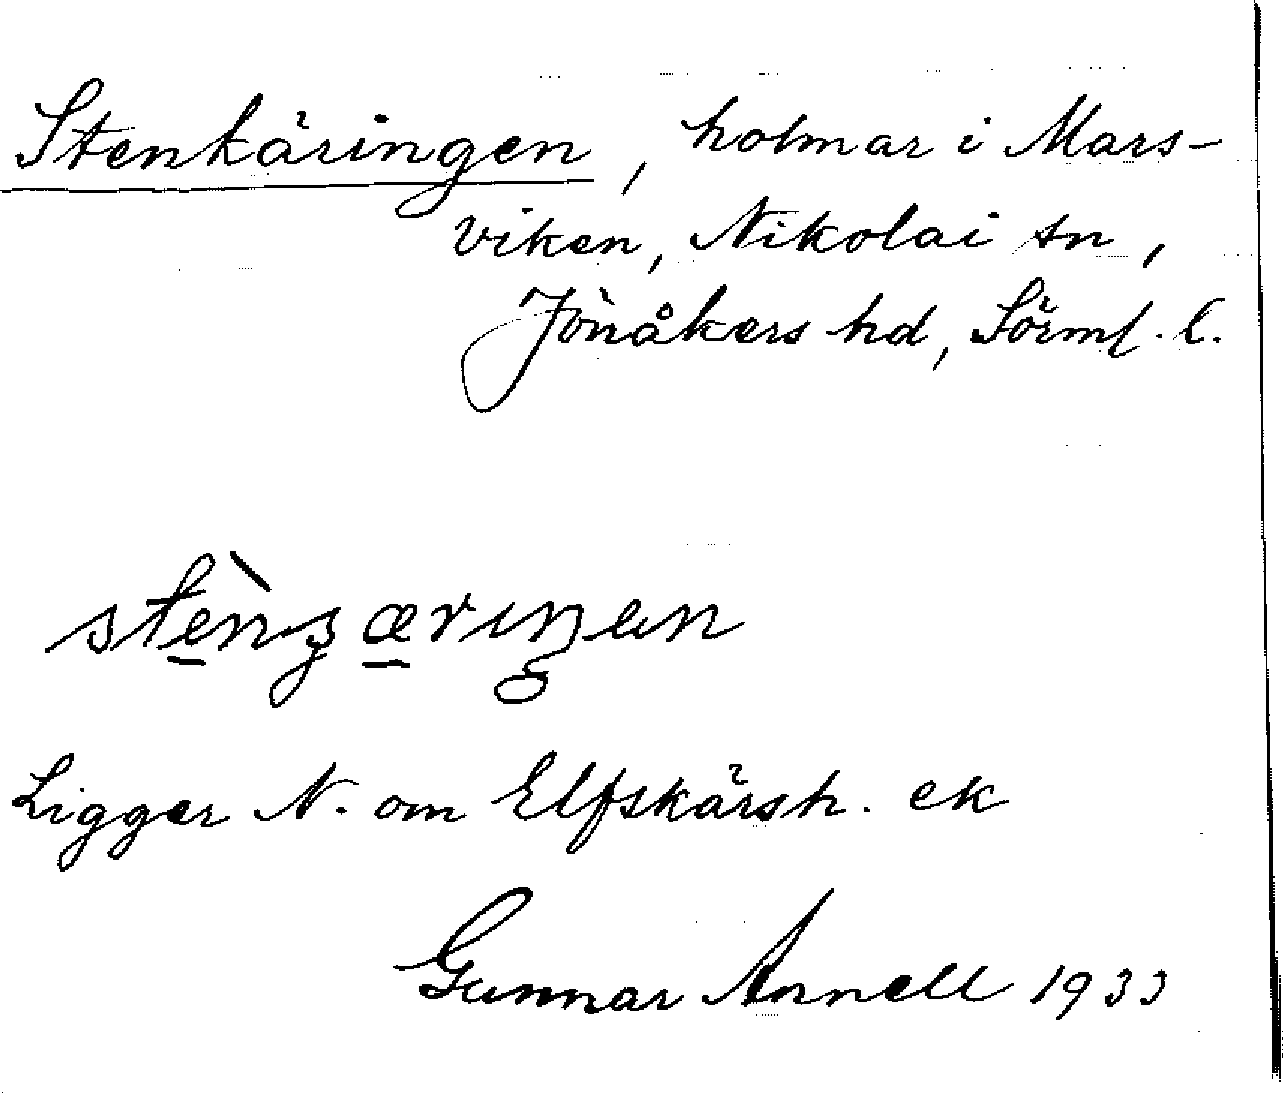 Stenkäringen, holmar i Mars-
viken, Nikolai sn,
Jönåkers hd, Sörml. l.
Ligger N. om Elfskärsh. ek
Gunnar Annell 1933